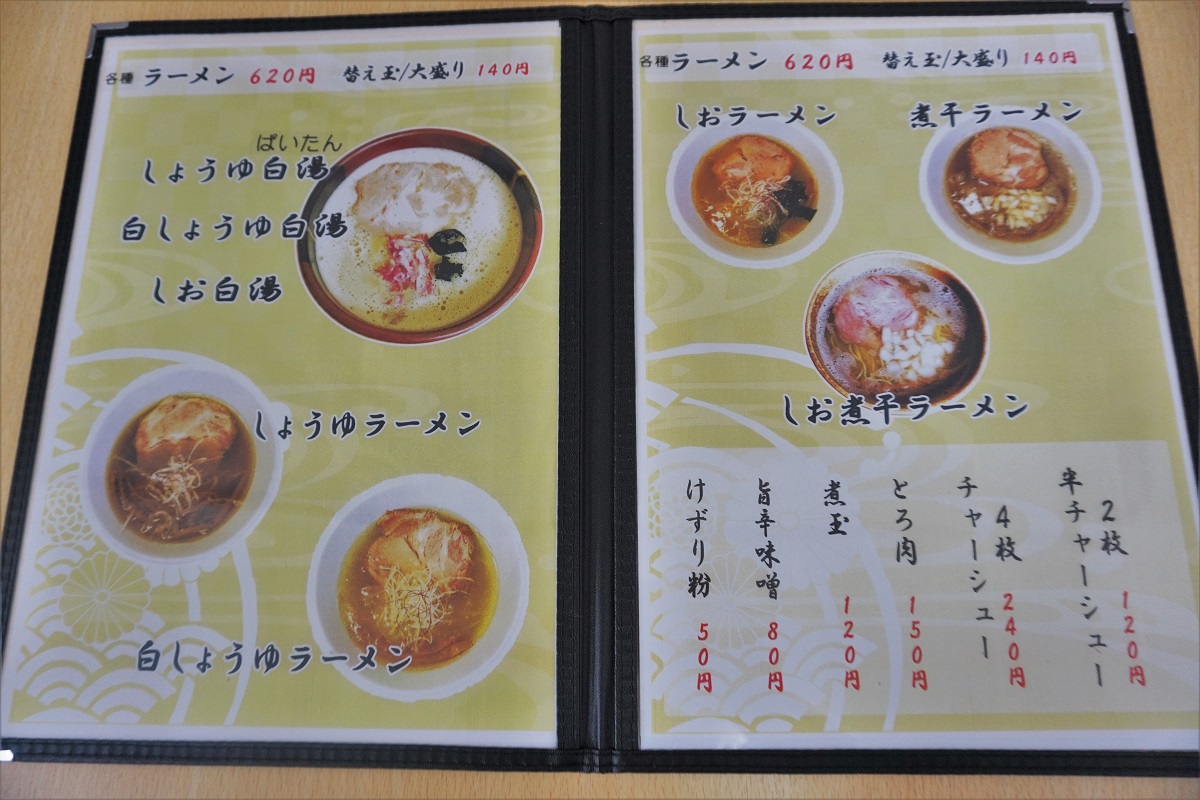 各種 ラーメン 620円 替え玉/大盛り 140円
ぱいたん
しょうゆ白湯
白しょうゆ白湯
しお白湯
しょうゆラーメン
白しょうゆラーメン
各種 ラーメン 620円 替え玉/大盛り 140円
しおラーメン
煮干ラーメン
しお煮干ラーメン
半チャーシュー
2枚 120円
チャーシュー
4枚 240円
とろ肉 150円
煮玉 120円
旨辛味噌 80円
けずり粉 50円